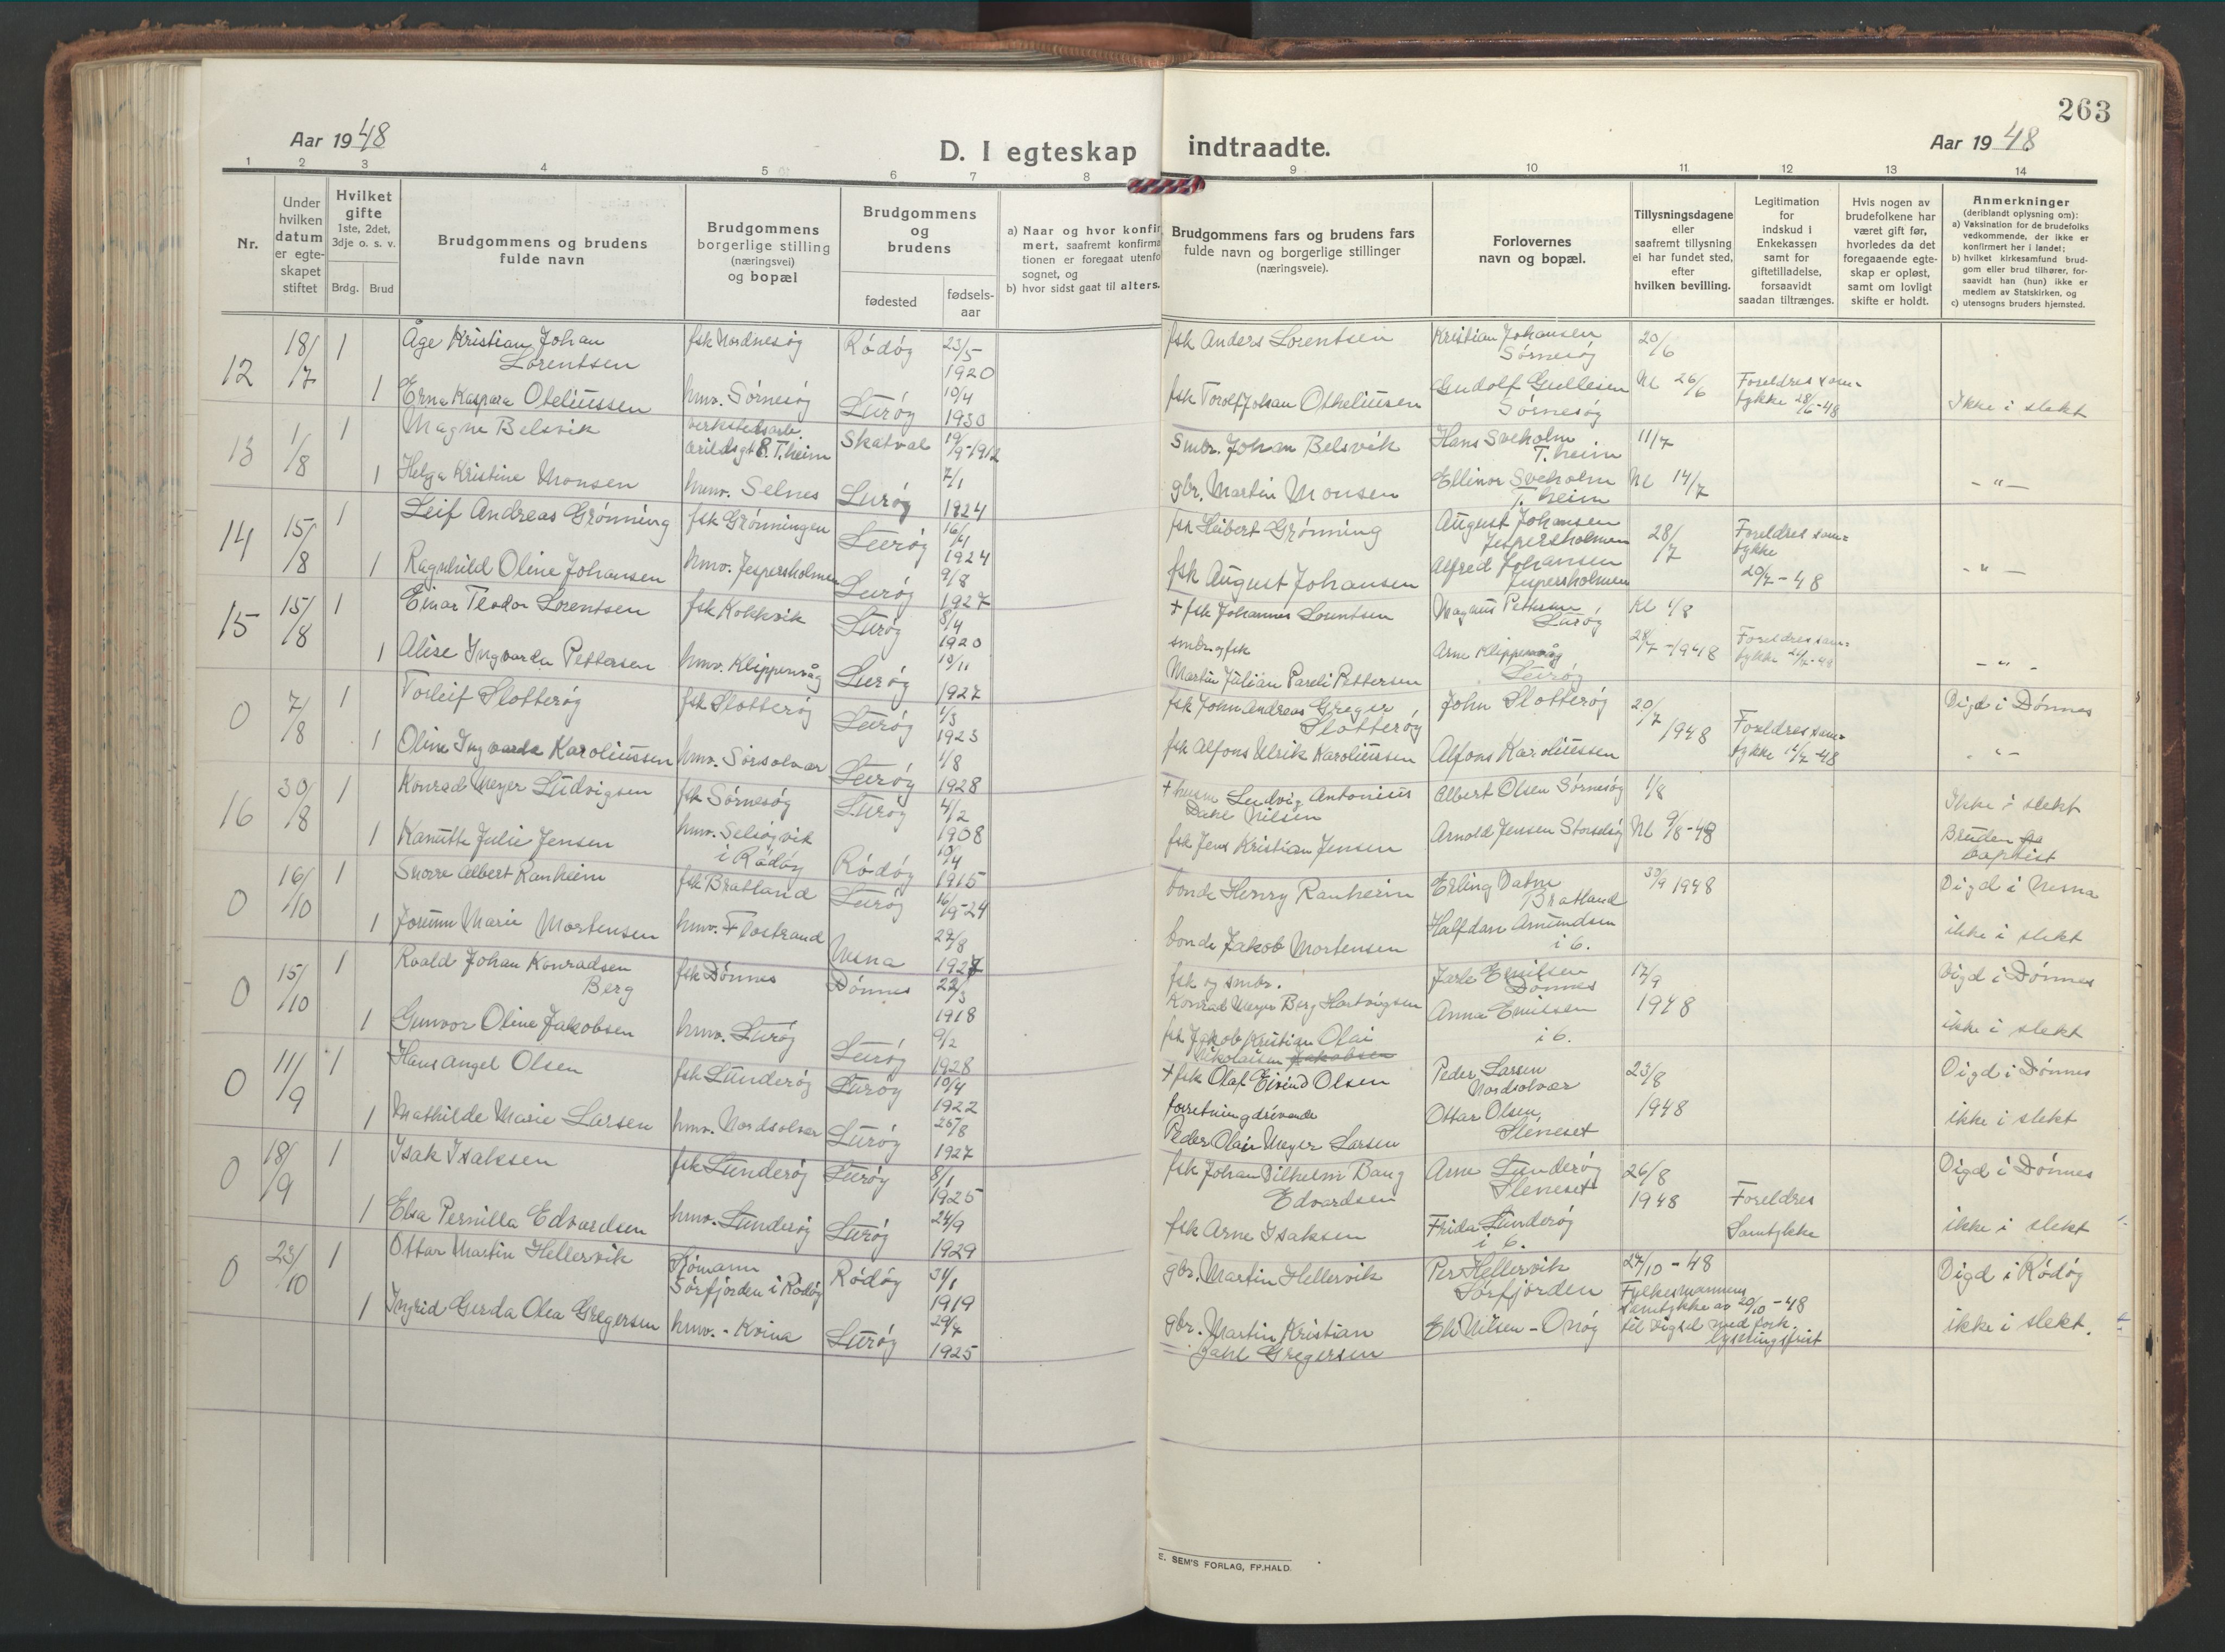 263
Aar 1948
D. I egteskap indtraadte.
Aar 1948
1 2 3 4 5 6 7 8 9 10 11 12 13 14
Nr.
Under
hvilken
datum
er egte-
skapet
stiftet
Hvilket
gifte
1ste, 2det,
3dje o. s. v.
Brdg. Brud
Brudgommens og brudens
fulde navn
Brudgommens
borgerlige stilling
(næringsvei)
og bopæl
Brudgommens
og
brudens
fødested
fødsels-
aar
a) Naar og hvor konfir
mert, saafremt konfirma
tionen er foregaat utenfo
sognet, og
b) hvor sidst gaat til alters.
Brudgommens fars og brudens fars
fulde navn og borgerlige stillinger
(næringsveie).
Forlovernes
navn og bopæl.
Tillysningsdagene
eller
saafremt tillysning
ei har fundet sted,
efter
hvilken bevilling.
Legitimation
for
indskud i
Enkekassen
samt for
giftetilladelse,
forsaavidt
saadan tiltrænges.
Hvis nogen av
brudefolkene har
været gift før,
hvorledes da det
foregaaende egte-
skap er opløst,
samt om lovligt
skifte er holdt.
Anmerkninger
(deriblandt oplysning om):
a) Vaksination for de brudefolks
vedkommende, der ikke er
konfirmert her i landet;
b) hvilket kirkesamfund brud-
gom eller brud tilhører, for-
saavidt han (hun) ikke er
medlem av Statskirken, og
c) utensogns bruders hjemsted.
12 18/7 1 Åge Kristian Johan Lorentsen fsk Nordnesøy Rödöy 23/5 1920 fsk Anders Lorentsen Kristian Johansen Sørnesøy 20/6
1 Erna Kaspara Oteliussen hmv. Sørnesøy Lurøy 10/4 1930 fsk Torolf Johan Otheliusen Gudolf Gullesen Sørnesøy Nl 26/6 Foreldres sam=tykke 28/6-48 Ikke i slekt
13 1/8 1 Magne Belsvik verkstedsarb. Arildsgt 8. T.heim Skatval 19/9-1912 Smbr. Johan Belsvik Hans Sveholm T.heim 11/7
1 Helga Kristine Monsen hmv. Selnes Lurøy 7/1 1924 gbr. Martin Monsen Ellinor Sveholm T.heim Nl 14/7 - " -
14 15/8 1 Leif Andreas Grønning fsk Grønningen Lurøy 16/4 1924 fsk Heibert Grønning August Johansen Jespersholmen 28/7 Foreldres sam=tykke 20/7-48
1 Ragnhild Oline Johansen hmv. Jespersholmen Lurøy 9/8 1927 fsk August Johansen Alfred Johansen Jespersholmen - " -
15 15/8 1 Einar Teodor Lorentsen fsk Kokkvik Lurøy 8/4 1920 + fsk Johannes Lorentsen Magnus Pettersen Lurøy Kl 1/8
1 Alise Ingvarda Pettersen hmv. Klippenvåg Lurøy 13/11 1927 smbr og fsk Martin Julian Pareli Pettersen Arne Klippenvåg Lurøy 28/7-1948 Foreldres sam=tykke - " -
0 7/8 1 Torleif Slotterøy fsk Slotterøy Lurøy 1/3 1923 fsk John Andreas Greger Slotterøy John Slotterøy 20/7 1948 Vigd i Dønnes
1 Oline Ingvarda Karoliussen hmv. Sørsolvær Lurøy 1/8 1928 fsk Alfons Ulrik Karoliussen Alfons Karoliussen Foreldres sam=tykke 12/7-48 " -
16 30/8 1 Konrad Meyer Ludvigsen fsk Sørnesøy Lurøy 4/2 1908 + husm Ludvig Antonius Dahl Nilsen Albert Olsen Sørnesøy 1/8 Ikke i slekt
1 Kanutte Julie Jensen hmv. Selsøyvik i Rødøy Rödöy 1915 fsk Jens Kristian Jensen Arnold Jensen Storselsøy Nl 9/8-48 Bruden baptist
0 16/10 1 Snorre Albert Ranheim fsk Bratland Lurøy 16/9-24 bonde Henry Ranheim Erling Vatne Bratland 30/9 1948 Vigd i Nesna
1 Jorunn Marie Mortensen hmv. Flostrand Nesna 27/8 1927 bonde Jakob Mortensen Halfdan Amundsen i b. ikke i slekt
0 15/10 1 Roald Johan Konradsen Berg fsk Dønnes Dönnes 22/3 1918 fsk og smbr. Konrad Meyer Berg Hartvigsen Jarle Emilsen Dønnes 17/9 1948 Vigd i Dønnes
1 Gunvor Oline Jakobsen hmv. Lurøy Lurøy 9/2 1928 fsk Jakob Kristian Olai Nikolaisen Jakobsen Anna Emilsen i b. ikke i slekt
0 11/9 1 Hans Angel Olsen fsk Lunderøy Lurøy 10/4 1922 + fsk Olaf Eivind Olsen Peder Larsen Nordsolvær 23/8 1948 Vigd i Dønnes
1 Mathilde Marie Larsen hmv. Nordsolvær Lurøy 25/8 1927 forretningdrivande Peder Olai Meyer Larsen Ottar Olsen Sleneset ikke i slekt
0 18/9 1 Isak Isaksen fsk Lunderøy Lurøy 8/1 1925 fsk Johan Vilhelm Bang Edvardsen Arne Lunderøy Sleneset 26/8 1948 Vigd i Dønnes
1 Elsa Pernilla Edvardsen hmv. Lunderøy Lurøy 24/9 1929 fsk Arne Isaksen Frida Lunderøy i b. Foreldres Samtykke ikke i slekt
0 23/10 1 Ottar Martin Hellervik Sjømann Sørfjorden i Rødøy Rödöy 31/1 1919 gbr. Martin Hellervik Per Hellervik Sørfjorden 27/10-48 Fylkesmannens samtykke av 20/10-48 til vigsel med fork. lysningsfrist Vigd i Rödöy
1 Ingrid Gerda Olea Gregersen hmv. - Kvina Lurøy 29/7 1925 gbr. Martin Kristian Dahl Gregersen Eli Nilsen - Onøy ikke i slekt.
E. SEM'S FORLAG, FR.HALD